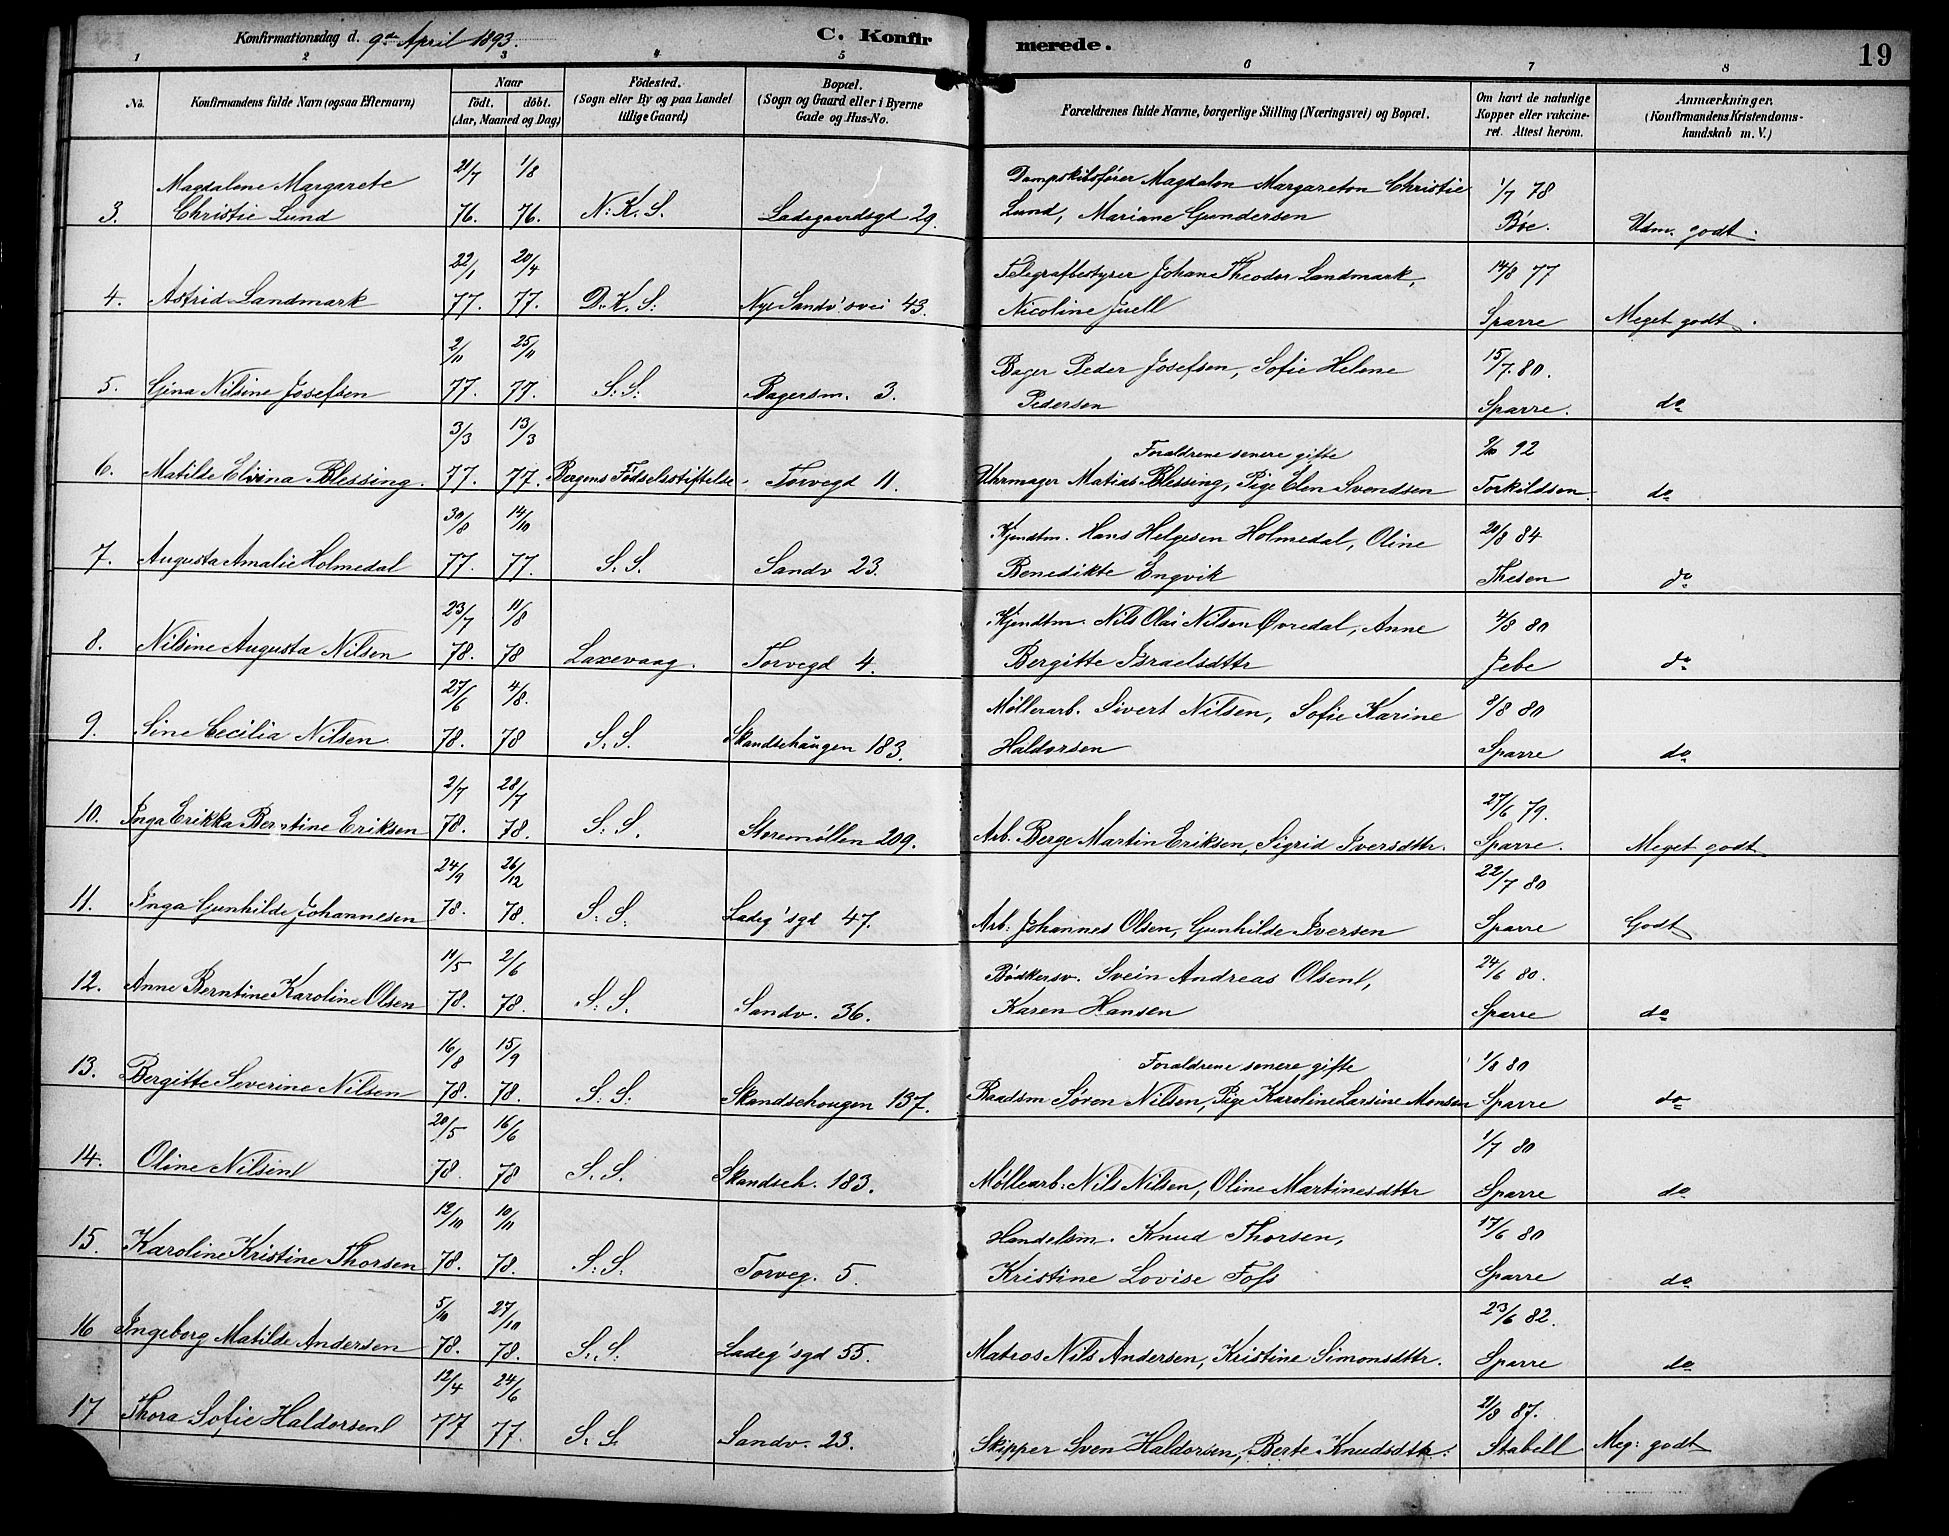 Konfirmationsdag d. 9de April 1893.
C. Konfirmerede.
19
1 2 3 4 5 6 7 8
No.
Konfirmandens fulde Navn (ogsaa Efternavn)
Naar
födt. döbt.
(Aar, Maaned og Dag)
Födested.
(Sogn eller By og paa Landet
tillige Gaard)
Bopæl.
(Sogn og Gaard eller i Byerne
Gade og Hus-No.
Forældrenes fulde Navne, borgerlige Stilling (Næringsvei) og Bopæl.
Om havt de naturlige
Kopper eller vakcine-
ret. Attest herom.
Anmærkninger.
(Konfirmandens Kristendoms-
kundskab m. V.)
Magdalene Margarete 21/7 1/8 Dampskibsfører Magdalon Margareton Christie 1/7 78
3. Christie Lund 76. 76. N. K. S. Ladegaardsgd 29. Lund, Mariane Gundersen Bøe. Udm. godt.
22/1 20/4 Telegrafbestyrer Johan Theodor Landmark, 14/8 77
4. Astrid Landmark 77. 77. D. K. S. Nye Sandv'svei 43. Nicoline Juell Sparre Meget godt.
2/11 25/11 Bager Peder Josefsen, Sofie Helene 15/7 80.
5. Gina Nilsine Josefsen 77. 77. S. S. Bagersm. 3. Pedersen Sparre. do
3/3 13/3 Forældrene senere gifte 92
6. Matilde Elisina Blessing. 77. 77. Bergens Fødselsstiftelse Torvegd 11. Uhrmager Matias Blessing, Pige Elen Svendsen Torkildsen do
30/8 14/10 Kjendtm. Hans Helgesen Holmedal, Oline 20/8 84
7. Augusta Amalie Holmedal 77. 77. S. S. Sandv 23. Benedikte Engvik Thesen do
23/7 11/8 Kjendtm. Nils Olai Nilsen Øvredal, Anne 4/8 80
8. Nilsine Augusta Nilsen 78. 78 Laxevaag. Torvegd 4. Bergitte Israelsdttr Jebe do
27/6 4/8. Møllerarb. Sivert Nilsen, Sofie Karine 3/8 80
9. Sine Cecilia Nilsen 78. 78 S. S. Skandsehaugen 183. Haldorsen Sparre do
2/7 28/7 27/6 79.
10. Inga Erikka Berntine Eriksen 78. 78. S. S. Storemøllen 209. Arb. Berge Martin Eriksen, Sigrid Iversdttr. Sparre. Meget godt
24/9 26/12 22/7 80
11. Inga Gunhilde Johannesen 78. 78. S. S. Ladeg'sgd 47. Arb: Johannes Olsen, Gunhilde Iversen Sparre Godt
19/5 2/6 Bødkersv. Svein Andreas Olsen, 24/6 80.
12. Anne Berntine Karoline Olsen 78. 78. S. S. Sandv. 36. Karen Hansen Sparre do
16/8 15/9 Forældrene senere gifte 1/8 80
13. Bergitte Severine Nilsen 78. 78. S. S. Skandsehougen 137. Baadsm Søren Nilsen, Pige Karoline Larsine Monsen Sparre do
20/5 16/6 1/7 80
14. Oline Nilsen 78. 78 S. S. Skandseh. 183. Møllearb. Nils Nilsen, Oline Martinesdttr Sparre do
12/10 10/11 Handelsm. Knud Thorsen, 17/6 80
15. Karoline Kristine Thorsen 78. 78. S. S. Torveg. 5. Kristine Lovise Foss Sparre do
5/10 27/10 23/6 82.
16 Ingeborg Matilde Andersen 78. 78. S. S. Ladeg'sgd 55. Matros Nils Andersen, Kristine Simonsdttr. Sparre do
12/4 24/6 21/3 87.
17 Thora Sofie Haldorsen 77 77. S. S. Sandv. 23. Skipper Sven Haldorsen, Berte Knudsdttr. Stabell Meg: godt